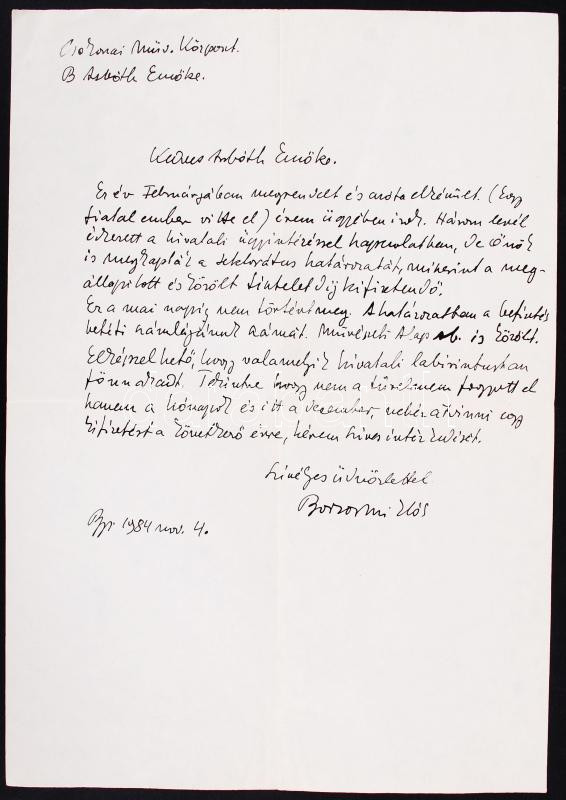 Csokonai Műv. Központ.
B Asbóth Emőke.
Kedves Asbóth Emőke.
Ez év Februárjában megrendelt és azóta elkészült. (Egy
fiatal ember vitte el) érem ügyében írok. Három levél
érkezett a hivatali ügyintézéssel kapcsolatban, de Önök
is megkapták a lektorátus határozatát, miszerint a meg-
állapított és közölt tiszteletdíj kifizetendő.
Ez a mai napig nem történt meg. A határozatban a befizetés
betéti számlájának számát. Művészeti Alap stb. is közölt.
Elképzelhető, hogy valamelyik hivatali labirintusban
fönnakadt. Tekintve hogy nem a türelmem fogyott el
hanem a hónapok és itt a december, nehéz átvinni egy
kifizetést a következő évre, kérem szíves intézkedését.
Szívélyes üdvözlettel
Borsos Miklós
Bp. 1984 nov. 4.